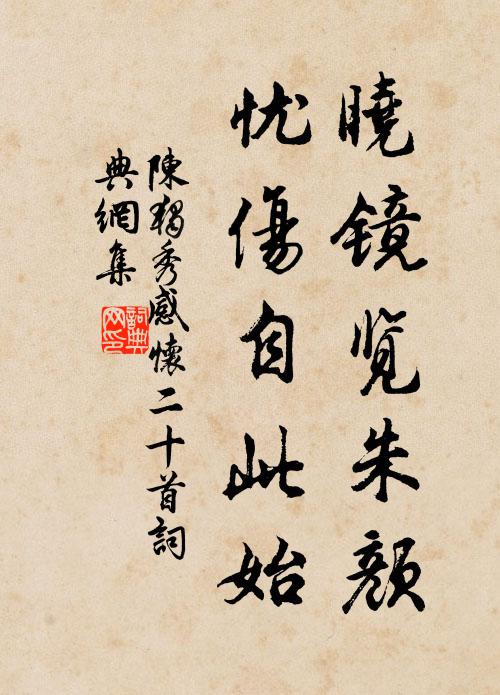 曉镜览朱颜
忧傷自此始
陳獨秀感懷二十首詞
典網集
詞典
网印